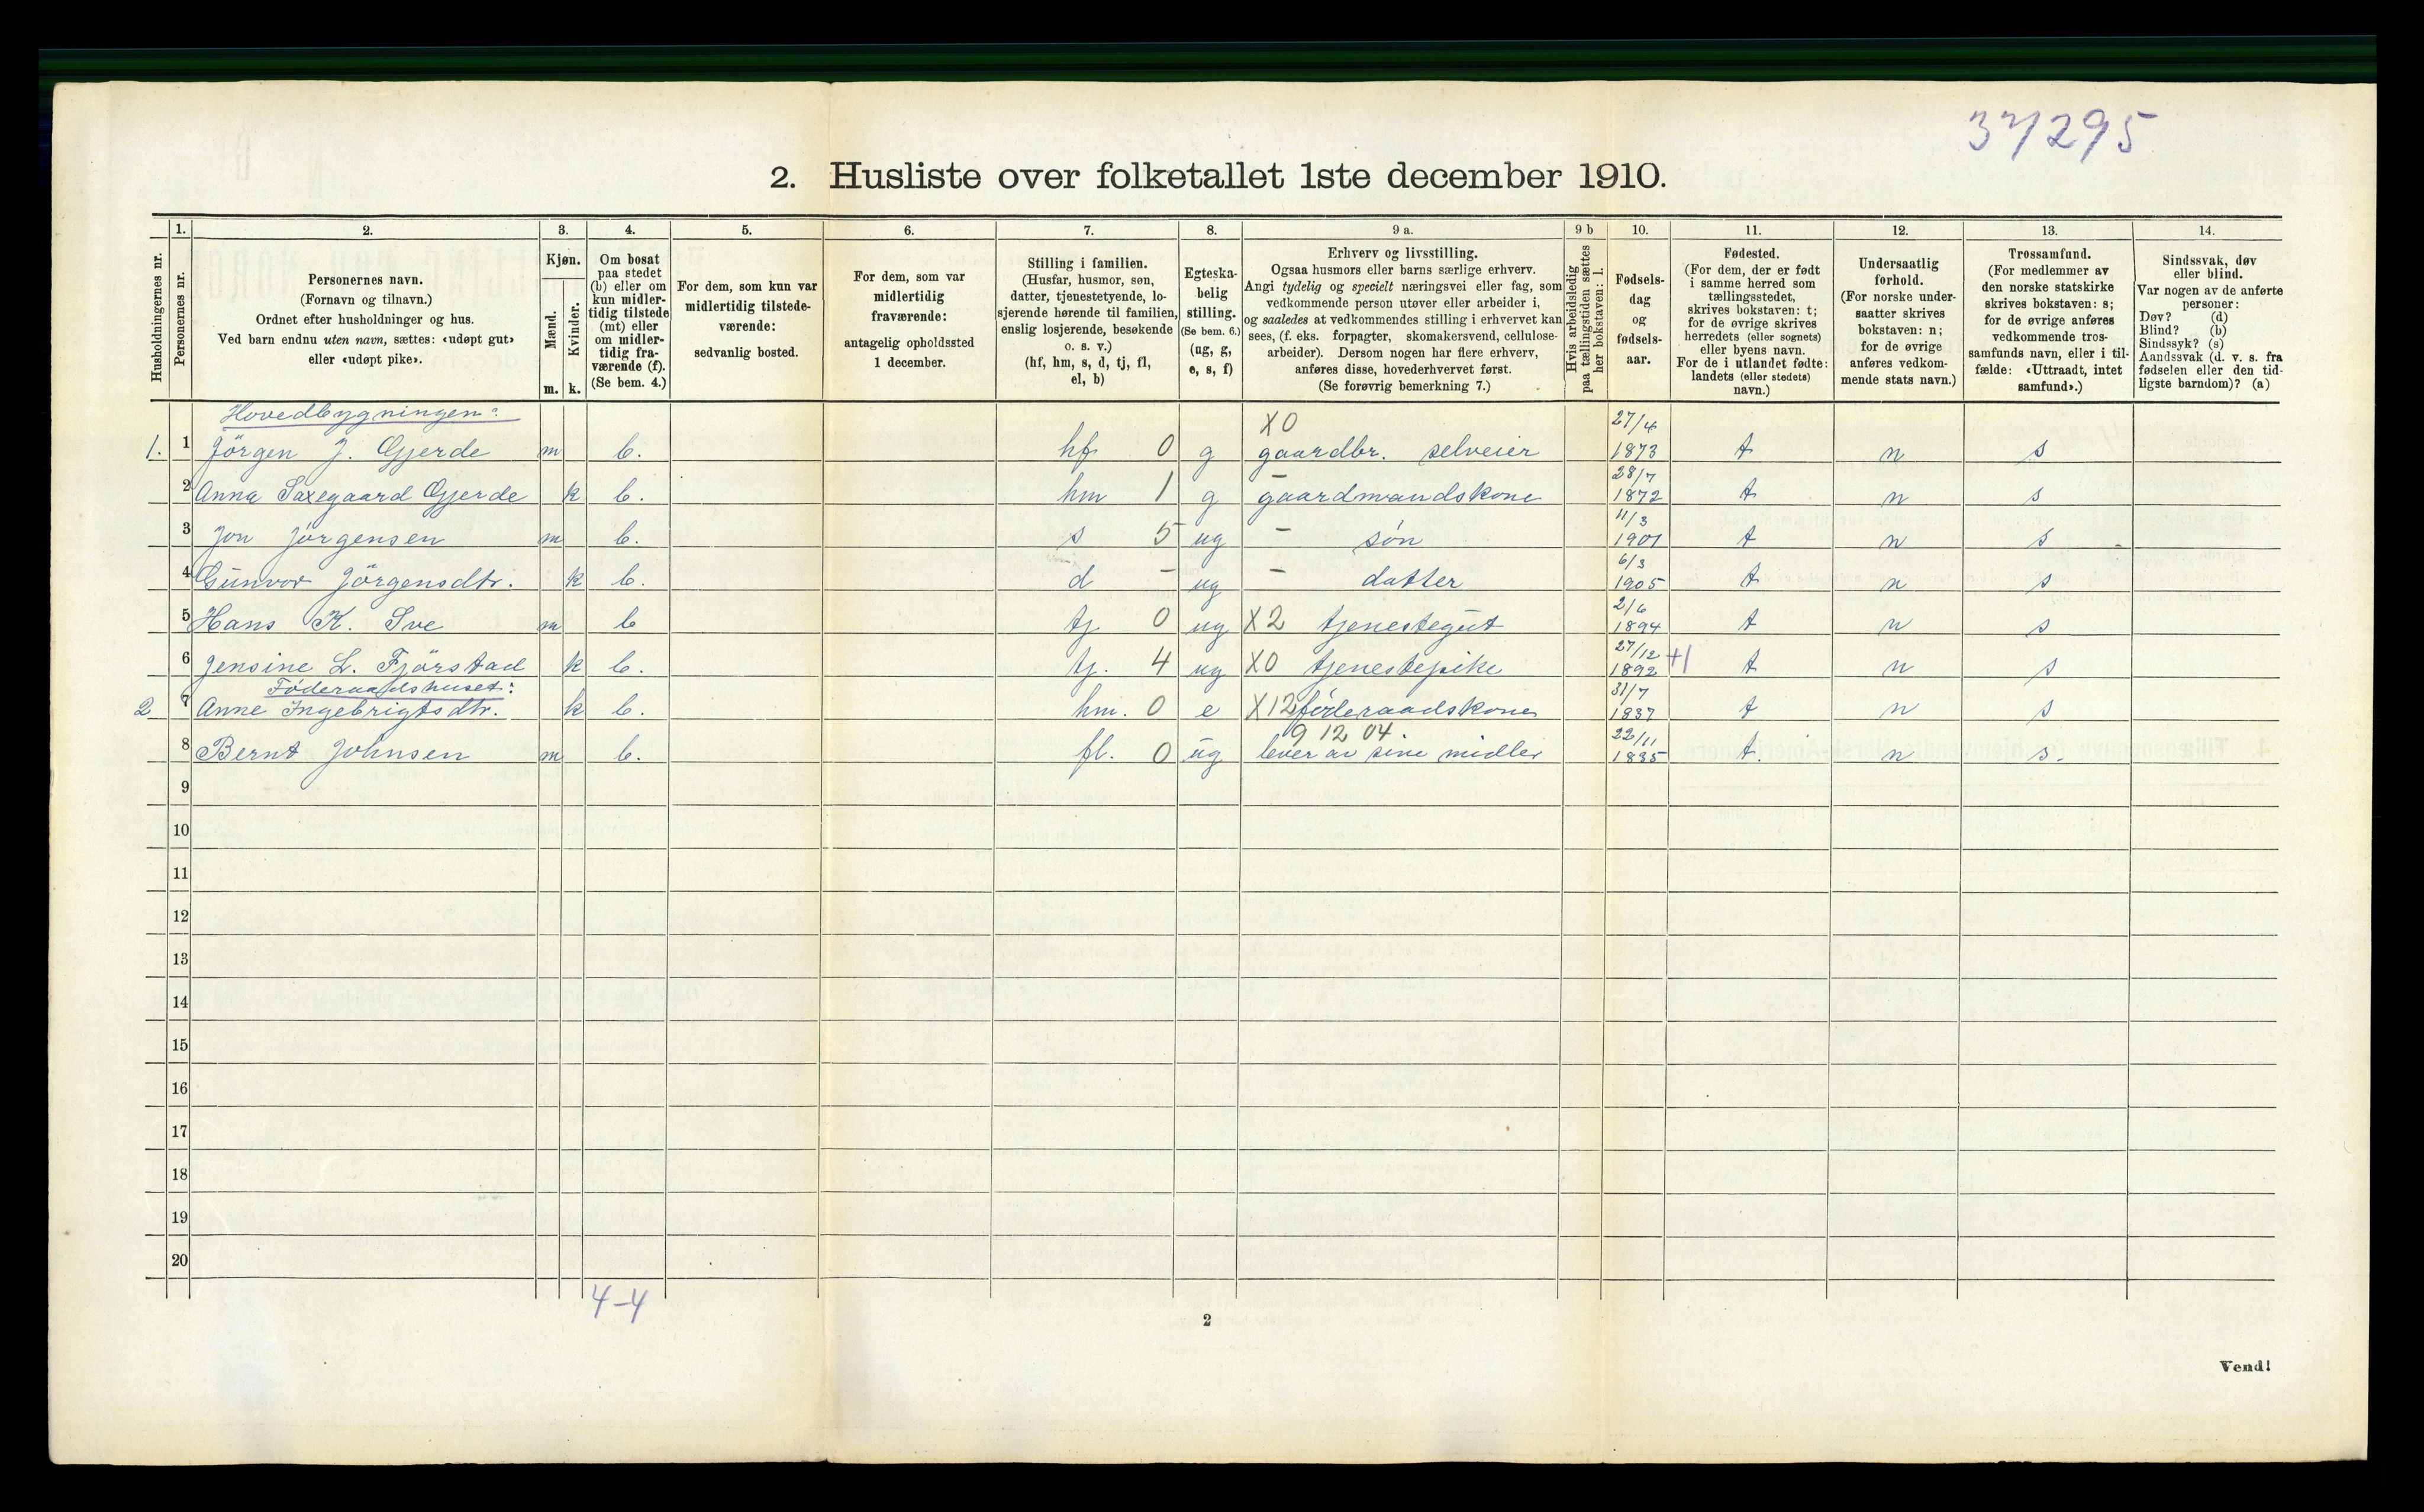 37/295
2. Husliste over folketallet 1ste december 1910.
Husholdningernes nr.
1.
Personernes nr.
2.
Personernes navn.
(Fornavn og tilnavn.)
Ordnet efter husholdninger og hus.
Ved barn endnu uten navn, sættes: «udøpt gut»
eller «udøpt pike».
3.
Kjøn.
Mænd.
Kvinder.
m. k.
4.
Om bosat
paa stedet
(b) eller om
kun midler-
tidig tilstede
(mt) eller
om midler-
tidig fra-
værende (f).
(Se bem. 4.)
5.
For dem, som kun var
midlertidig tilstede-
værende:
sedvanlig bosted.
6.
For dem, som var
midlertidig
fraværende:
antagelig opholdssted
1 december.
7.
Stilling i familien.
(Husfar, husmor, søn,
datter, tjenestetyende, lo-
sjerende hørende til familien,
enslig losjerende, besøkende
o. s. v.)
(hf, hm, s, d, tj, fl,
el, b)
8.
Egteska-
belig
stilling.
(Se bem. 6.)
(ug, g,
e, s, f)
9 a.
Erhverv og livsstilling.
Ogsaa husmors eller barns særlige erhverv.
Angi tydelig og specielt næringsvei eller fag, som
vedkommende person utøver eller arbeider i,
og saaledes at vedkommendes stilling i erhvervet kan
sees, (f. eks. forpagter, skomakersvend, cellulose-
arbeider). Dersom nogen har flere erhverv,
anføres disse, hovederhvervet først.
(Se forøvrig bemerkning 7.)
9 b
Hvis arbeidsledig
paa tællingstiden sættes
her bokstaven: l.
10.
Fødsels-
dag
og
fødsels-
aar.
11.
Fødested.
(For dem, der er født
i samme herred som
tællingsstedet,
skrives bokstaven: t;
for de øvrige skrives
herredets (eller sognets)
eller byens navn.
For de i utlandet fødte:
landets (eller stedets)
navn.)
12.
Undersaatlig
forhold.
(For norske under-
saatter skrives
bokstaven: n;
for de øvrige
anføres vedkom-
mende stats navn.)
13.
Trossamfund.
(For medlemmer av
den norske statskirke
skrives bokstaven: s;
for de øvrige anføres
vedkommende tros-
samfunds navn, eller i til-
fælde: «Uttraadt, intet
samfund».)
14.
Sindssvak, døv
eller blind.
Var nogen av de anførte
personer:
Døv? (d)
Blind? (b)
Sindssyk? (s)
Aandssvak (d. v. s. fra
fødselen eller den tid-
ligste barndom)? (a)
Hovedbygningen: X0 27/4
1. 1 Jörgen J. Gjerde m b. hf 0 g gaardbr. selveier 1873 t n s
28/7
2 Anna Saxegaard Gjerde k b. hm 1 g gaardmandskone 1872 t n s
11/3
3 Jon Jörgensen m b. s 5 ug - sön 1901 t n s
6/3
4 Gunvor Jörgensdtr. k b. d - ug - datter 1905 t n s
2/6
5 Hans K. Sve m b tj 0 ug X2 tjenestegut 1894 t n s
27/12
6 Jensine L. Fjörstad k b. tj. 4 ug X0 tjenestepike 1892 +1 t n s
Föderaadshuset: 31/7
2 7 Anne Ingebrigtsdtr. k b. hm. 0 e X12 föderaadskone 1837 t n s
9 12 04 22/11
8 Bernt Johnsen m b. fl. 0 ug lever av sine midler 1835 t. n s.
9
10
11
12
13
14
15
16
17
18
19
20
4-4
2
Vend!